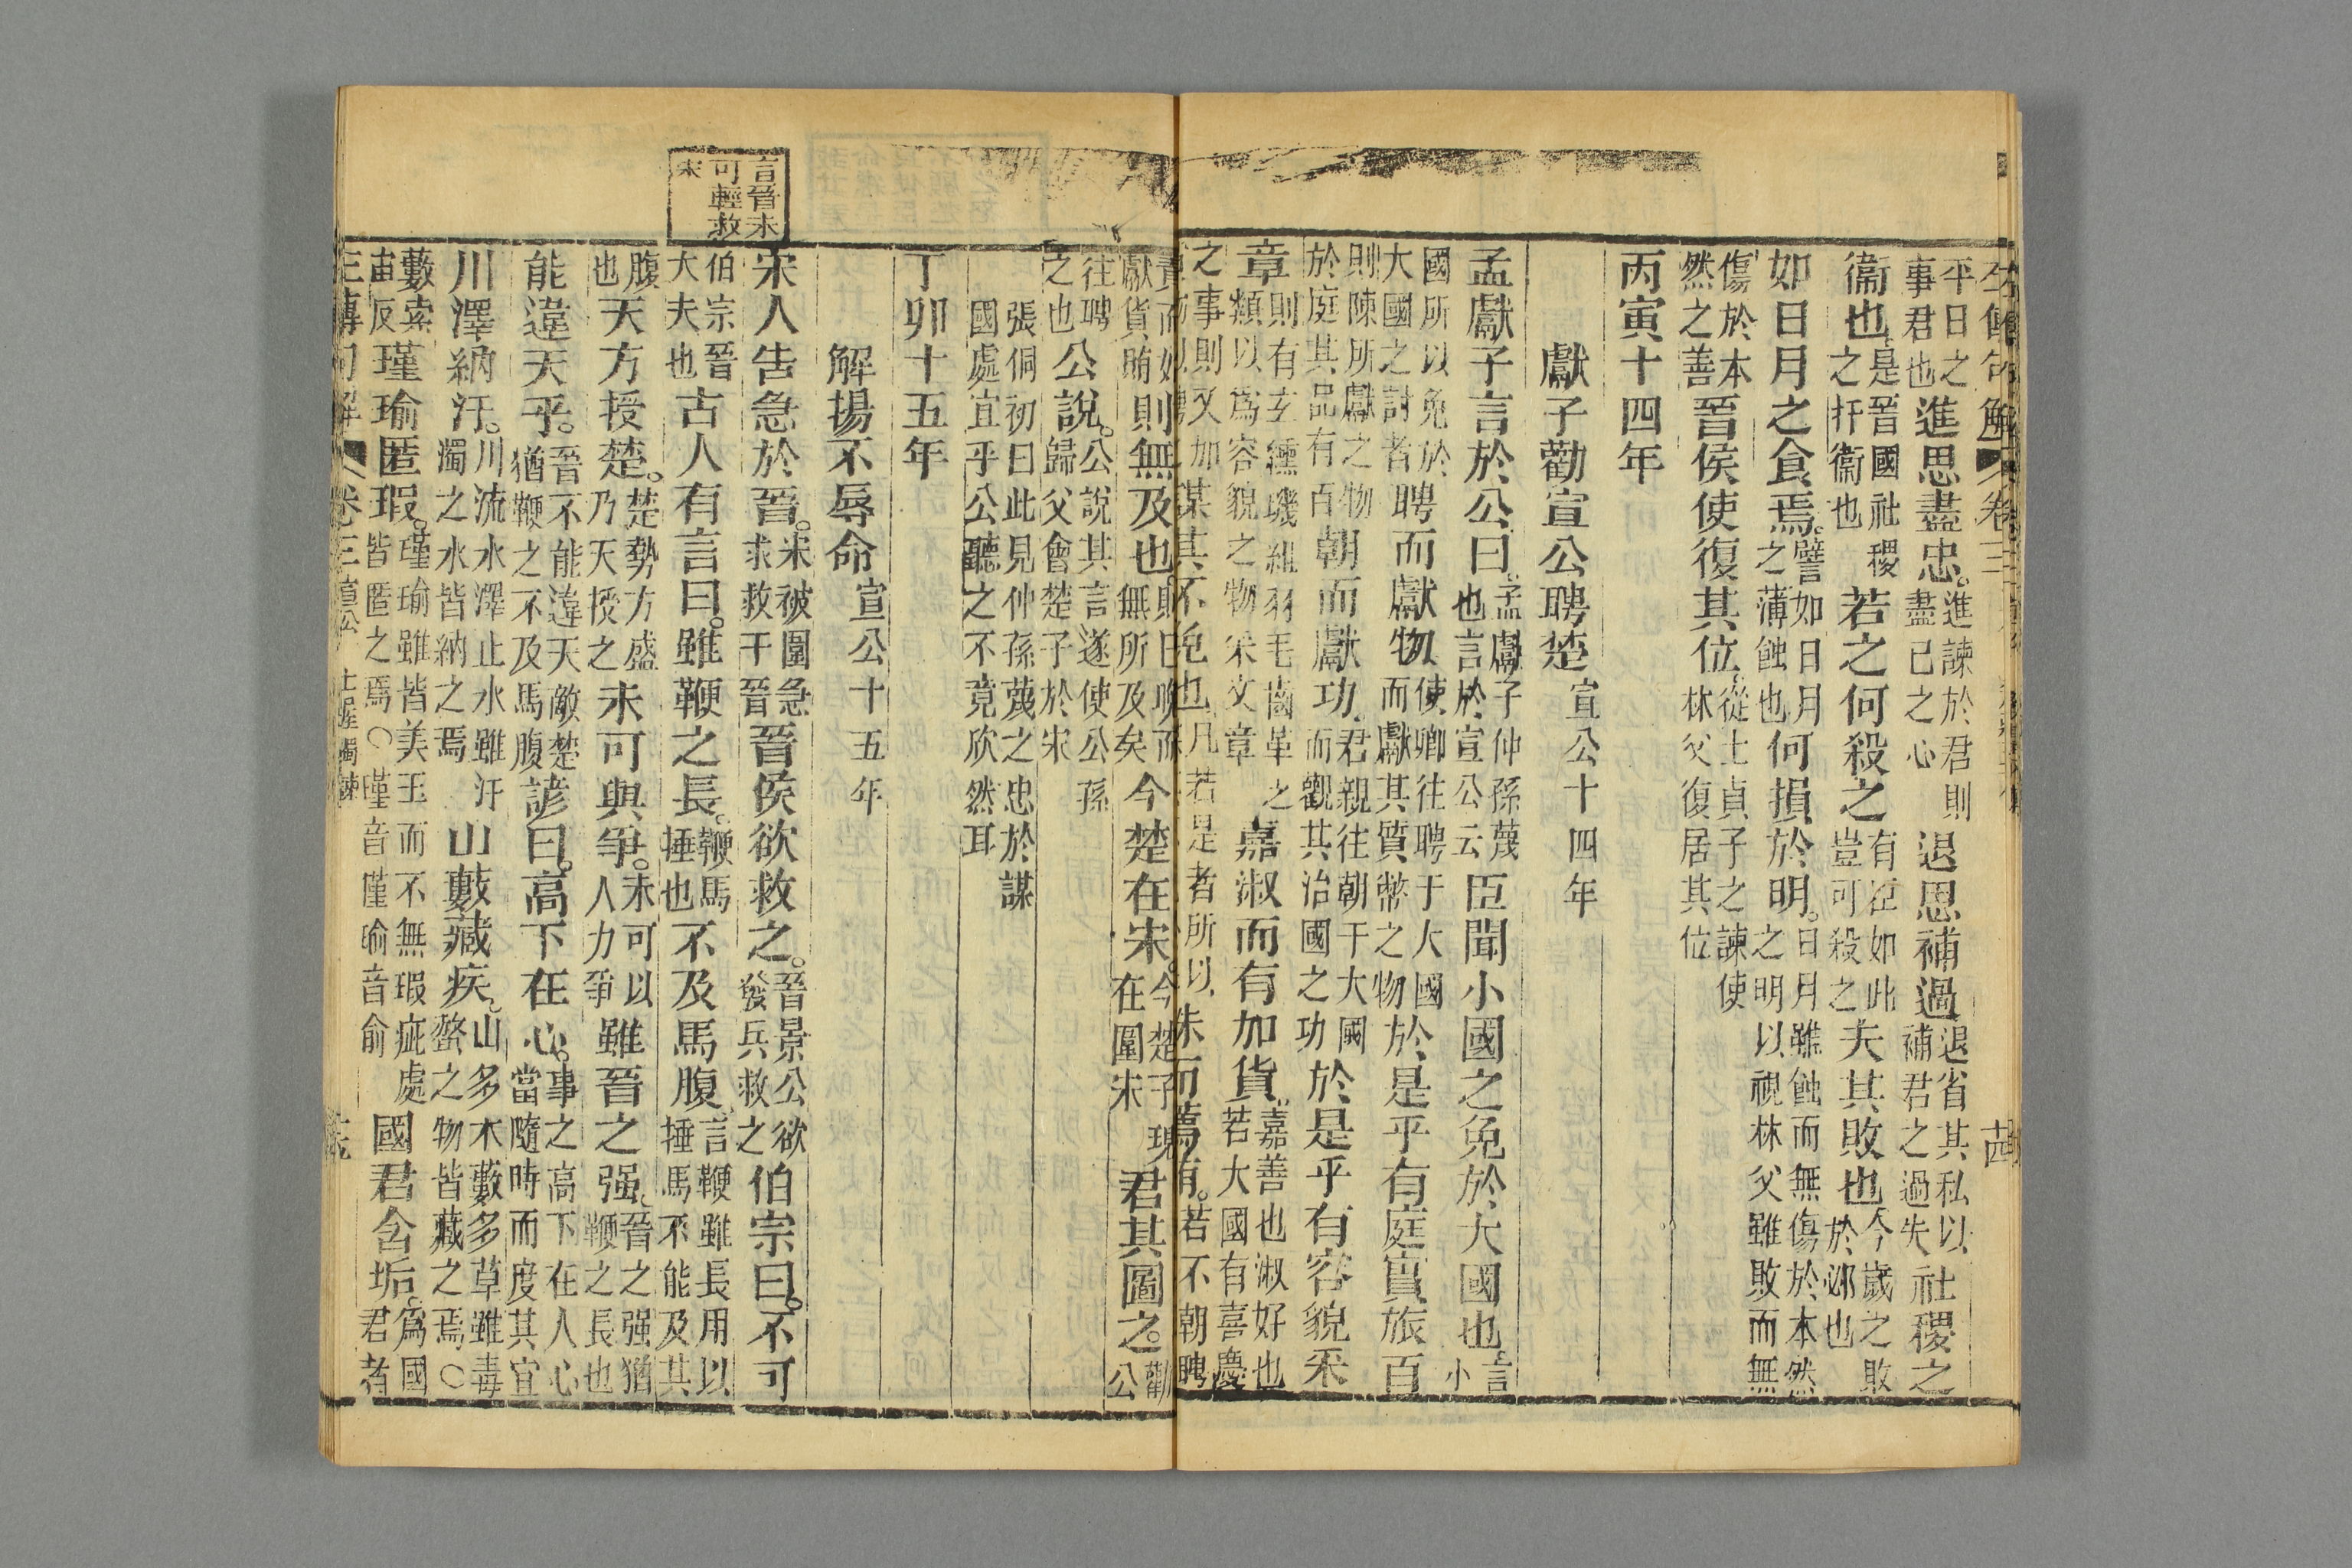 左傳句解 卷三 十四
平日之事君也進思盡忠。進諫於君則盡己之心退思補過退省其私以補君之過失社稷之
衞也。是晉國社稷之扞衞也若之何殺之有臣如此豈可殺之夫其敗也今歲之敗於邲也
如日月之食焉。譬如日月之薄蝕也何損於明。日月雖蝕而無傷於本然之明以視林父雖敗而無
傷於本然之善晉侯使復其位。從士貞子之諫使林父復居其位
丙寅十四年
獻子勸宣公聘楚宣公十四年
孟獻子言於公曰。孟獻子仲孫蔑也言於宣公云臣聞小國之免於大國也。言小
國所以免於大國之討者聘而獻物使卿往聘于大國而獻其質幣之物於是乎有庭實旅百
則陳所獻之物於庭其品有百朝而獻功君親往朝于大國而觀其治國之功於是乎有容貌采
章則有玄纁璣組羽毛齒革之類以爲容貌之物采文章嘉淑而有加貨。嘉善也淑好也若大國有喜慶
之事則又加謀其不免也凡若是者所以誅而薦賄。若不朝聘
責而始獻貨賄則無及也則曰晚而無所及矣今楚在宋。今楚子現在圍宋君其圖之。勸公
往聘之也公說。公說其言遂使公孫歸父會楚子於宋
張侗初曰此見仲孫蔑之忠於謀國處宜乎公聽之不竟欣然耳
丁卯十五年
解揚不辱命宣公十五年
言晉未可輕救宋
宋人告急於晉。宋被圍急求救于晉晉侯欲救之。晉景公欲發兵救之伯宗曰。不可
伯宗晉大夫也古人有言曰。雖鞭之長。鞭馬捶也不及馬腹。言鞭雖長用以捶馬不能及其
腹也天方授楚。楚勢方盛乃天授之未可與爭。未可以人力爭雖晉之强。晉之强猶鞭之長也
能違天乎。晉不能違天敵楚猶鞭之不及馬腹諺曰。高下在心。事之高下在人心當隨時而度其宜
川澤納汙。川流水澤止水雖汙濁之水皆納之焉山藪藏疾。山多木藪多草雖毒螫之物皆藏之焉〇
藪素亩反瑾瑜匿瑕。瑾瑜雖皆美玉而不無瑕疵處皆匿之焉〇瑾音僅瑜音俞國君含垢。爲國君者
左傳句解 卷三 宣公